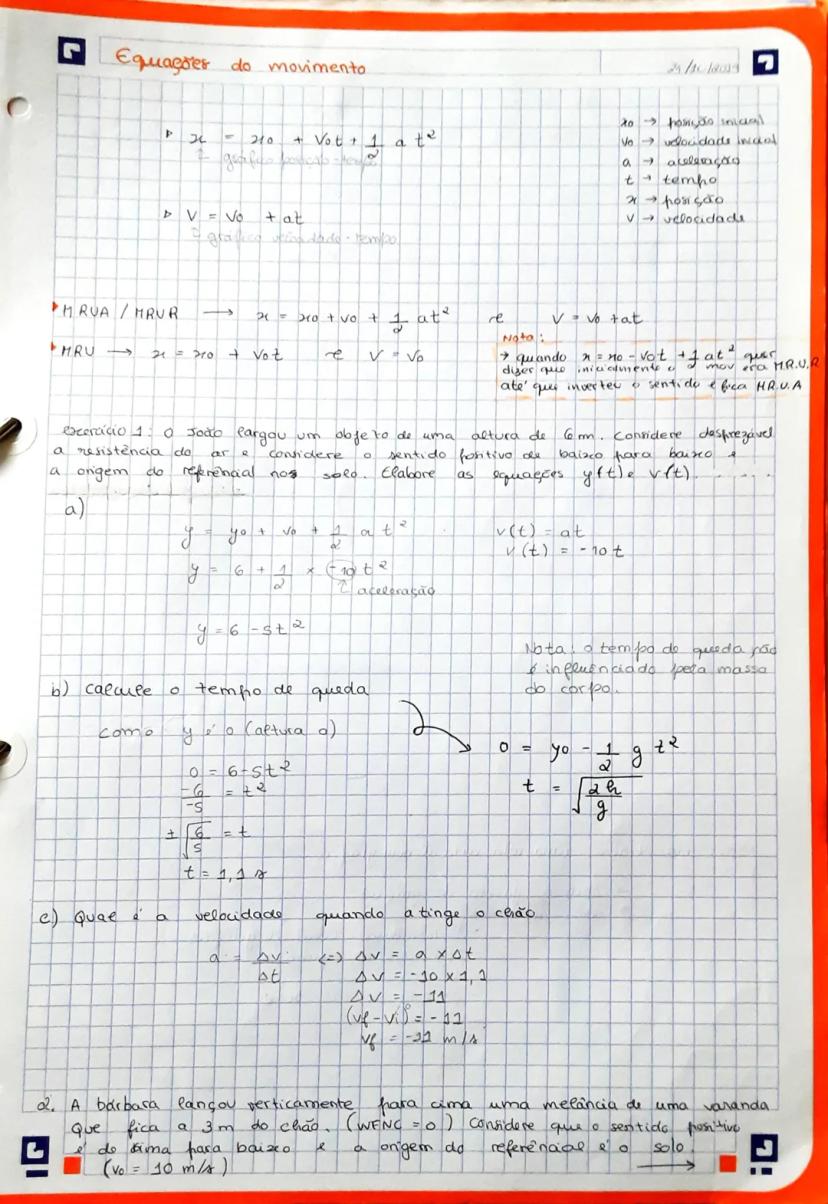 Equações do movimento
x = x0 + V0t + 1/2 a t²
↑ gráfico posição-tempo
V = V0 + at
↑ gráfico velocidade-tempo
x0 → posição inicial
V0 → velocidade inicial
a → aceleração
t → tempo
x → posição
V → velocidade
MRUA / MRUR → x = x0 + v0 + 1/2 at² e V = V0 + at
MRU → x = x0 + V0t e V = V0
Nota:
→ quando x = x0 - V0t + 1/2 at² quer
dizer que inicialmente o mov era M.R.U.R
até que inverteu o sentido e fica M.R.U.A
exercício 1: O João largou um objeto de uma altura de 6m. Considere desprezável
a resistência do ar e considere o sentido positivo de baixo para baixo e
a origem do referencial nos solo. Elabore as equações y(t) e v(t).
a)
y = y0 + v0 + 1/2 a t²
y = 6 + 1/2 × (-10) t²
↑ aceleração
y = 6 - 5t²
v(t) = at
v(t) = -10t
Nota: o tempo de queda não
é influenciado pela massa
do corpo.
b) calcule o tempo de queda
como y é 0 (altura 0)
0 = 6-5t²
-6/-5 = t²
± √6/5 = t
t = 1,1 s
0 = y0 - 1/2 g t²
t = √2h/g
c) Qual é a velocidade quando atinge o chão
a = Δv/Δt (=) Δv = a × Δt
Δv = -10 × 1,1
Δv = -11
(vf-vi)⁰ = -11
vf = -11 m/s
2. A bárbara lançou verticamente para cima uma melância de uma varanda
que fica a 3m do chão. (WFNC = 0) Considere que o sentido positivo
é de cima para baixo e a origem do referêncial é o solo.
(v0 = 10 m/s) →